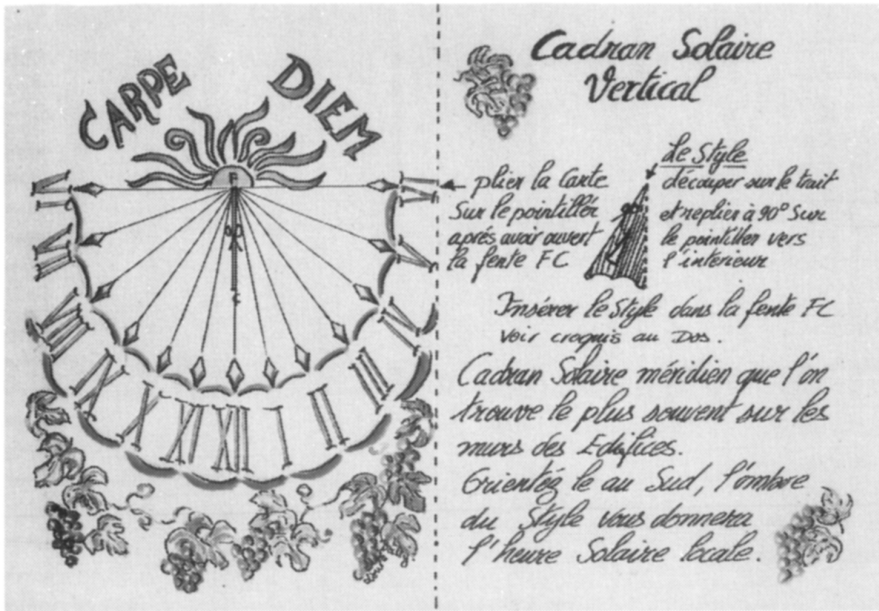 CARPE DIEM
F
C
VI
VII
VIII
IX
X
XI
XII
I
II
III
IV
V
VI
Cadran Solaire
Vertical
plier la Carte
Sur le pointillér
aprés avoir ouvert
la fente FC
Le Style
découper sur le trait
et replier à 90° Sur
le pointiller vers
l'intérieur
Insérer le Style dans la fente FC
Voir croquis au Dos.
Cadran Solaire méridien que l'on
trouve le plus souvent sur les
murs des Edifices.
Orientéz le au Sud, l'ombre
du Style vous donnera
l'heure Solaire locale.